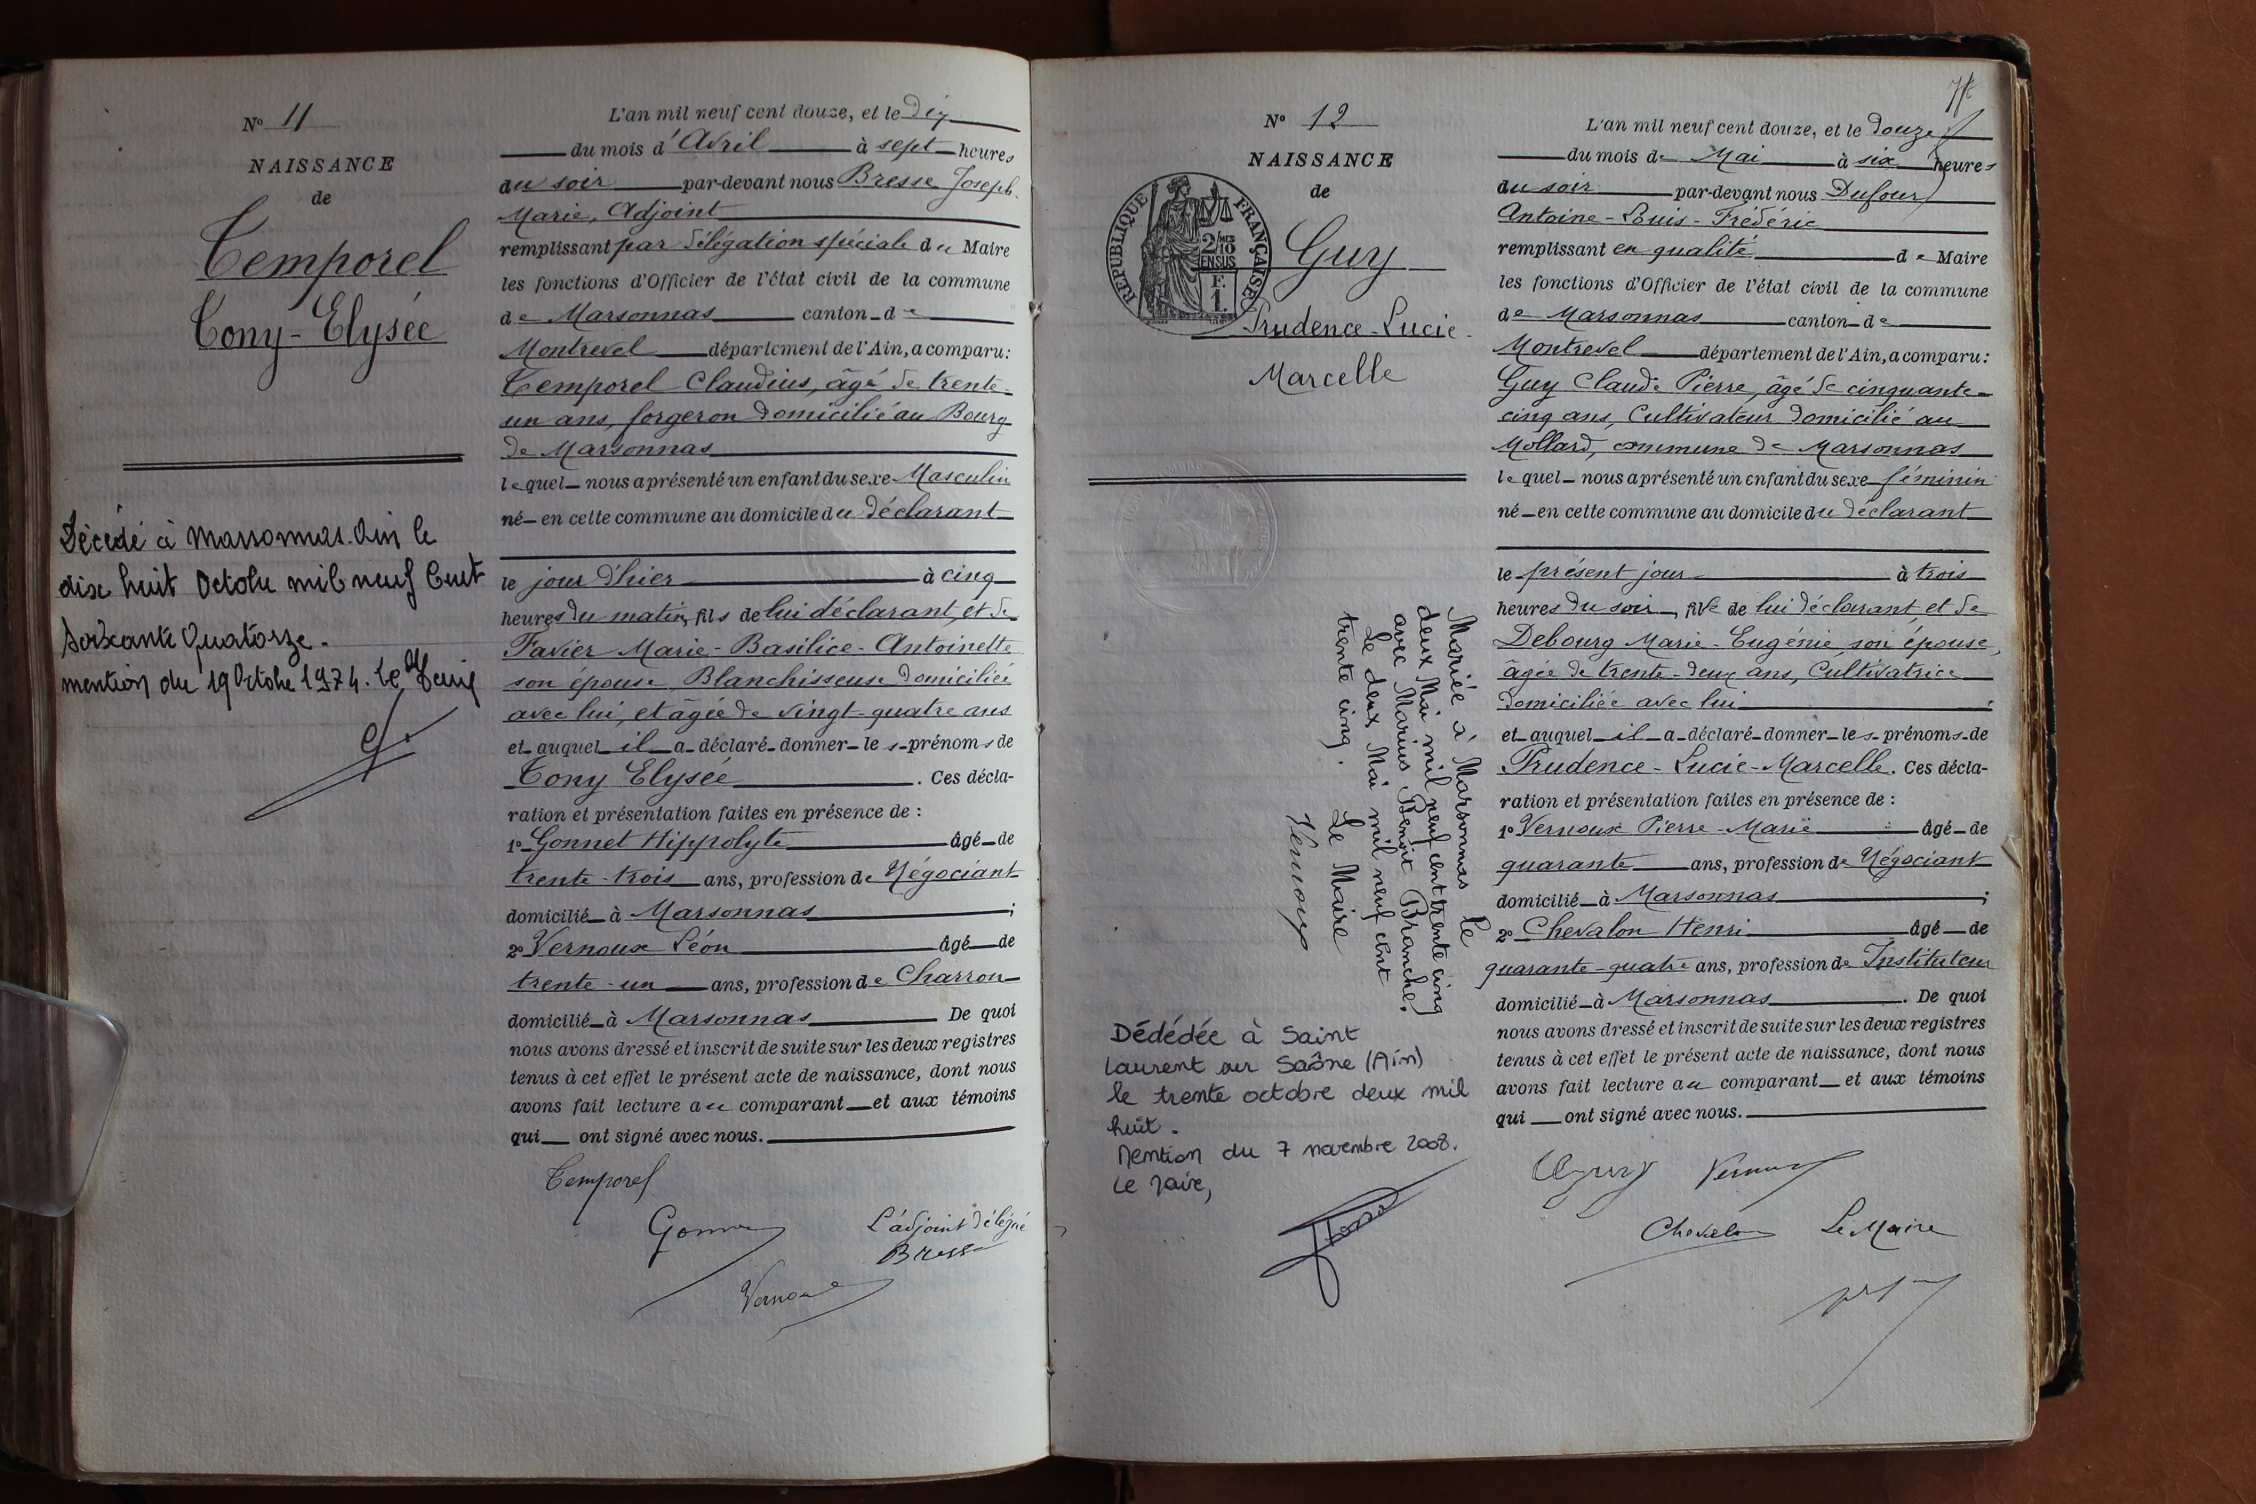 N° 11
NAISSANCE
de
Temporel
Tony-Elysée
Décédé à Marsonnas. Ain le
dix huit Octobre mil neuf Cent
soixante Quatorze.
mention du 19 Octobre 1974. Le
L'an mil neuf cent douze, et le dix
du mois d'Avril à sept heures
du soir par-devant nous Bresse Joseph
Marie, Adjoint
remplissant par délégation spéciale du Maire
les fonctions d'Officier de l'état civil de la commune
de Marsonnas canton de
Montrevel département de l'Ain, a comparu:
Temporel Claudius, âgé de trente-
un ans, forgeron domicilié au Bourg
de Marsonnas
lequel nous a présenté un enfant du sexe Masculin
né en cette commune au domicile du déclarant
le jour d'hier à cinq
heures du matin, fils de lui déclarant, et de
Favier Marie-Basilice-Antoinette
son épouse, Blanchisseuse domiciliée
avec lui, et âgée de vingt-quatre ans
et auquel il a déclaré donner les prénoms de
Tony Elysée. Ces décla-
ration et présentation faites en présence de :
1° Gonnet Hippolyte âgé de
trente-trois ans, profession de Négociant
domicilié à Marsonnas ;
2° Vernoux Léon âgé de
trente-un ans, profession de Charron
domicilié à Marsonnas De quoi
nous avons dressé et inscrit de suite sur les deux registres
tenus à cet effet le présent acte de naissance, dont nous
avons fait lecture au comparant et aux témoins
qui ont signé avec nous.
Temporel
Gonnet
L'adjoint délégué
Bresse
Vernoux
N° 12
NAISSANCE
de
RÉPUBLIQUE FRANÇAISE
2/10 MES
EN SUS
F.
1.
Guy
Prudence-Lucie-
Marcelle
Mariée à Marsonnas le
deux Mai mil neuf cent trente cinq
avec Marius Benoit Branche.
Le deux Mai mil neuf cent
trente cinq. Le Maire
Vernoux
Dédédée à Saint
Laurent sur Saône (Ain)
le trente octobre deux mil
huit.
Mention du 7 novembre 2008.
Le Maire,
L'an mil neuf cent douze, et le douze
du mois de Mai à six heures
du soir par-devant nous Dufour
Antoine-Louis-Frédéric
remplissant en qualité de Maire
les fonctions d'Officier de l'état civil de la commune
de Marsonnas canton de
Montrevel département de l'Ain, a comparu:
Guy Claude Pierre, âgé de cinquante-
cinq ans, Cultivateur domicilié au
Mollard, commune de Marsonnas
lequel nous a présenté un enfant du sexe féminin
né en cette commune au domicile du déclarant
le présent jour à trois
heures du soir, fille de lui déclarant, et de
Debourg Marie-Eugénie, son épouse,
âgée de trente-deux ans, Cultivatrice
domiciliée avec lui ;
et auquel il a déclaré donner les prénoms de
Prudence-Lucie-Marcelle. Ces décla-
ration et présentation faites en présence de :
1° Vernoux Pierre-Marie âgé de
quarante ans, profession de Négociant
domicilié à Marsonnas ;
2° Chevalon Henri âgé de
quarante-quatre ans, profession de Instituteur
domicilié à Marsonnas. De quoi
nous avons dressé et inscrit de suite sur les deux registres
tenus à cet effet le présent acte de naissance, dont nous
avons fait lecture au comparant et aux témoins
qui ont signé avec nous.
Guy Vernoux
Chevalon Le Maire